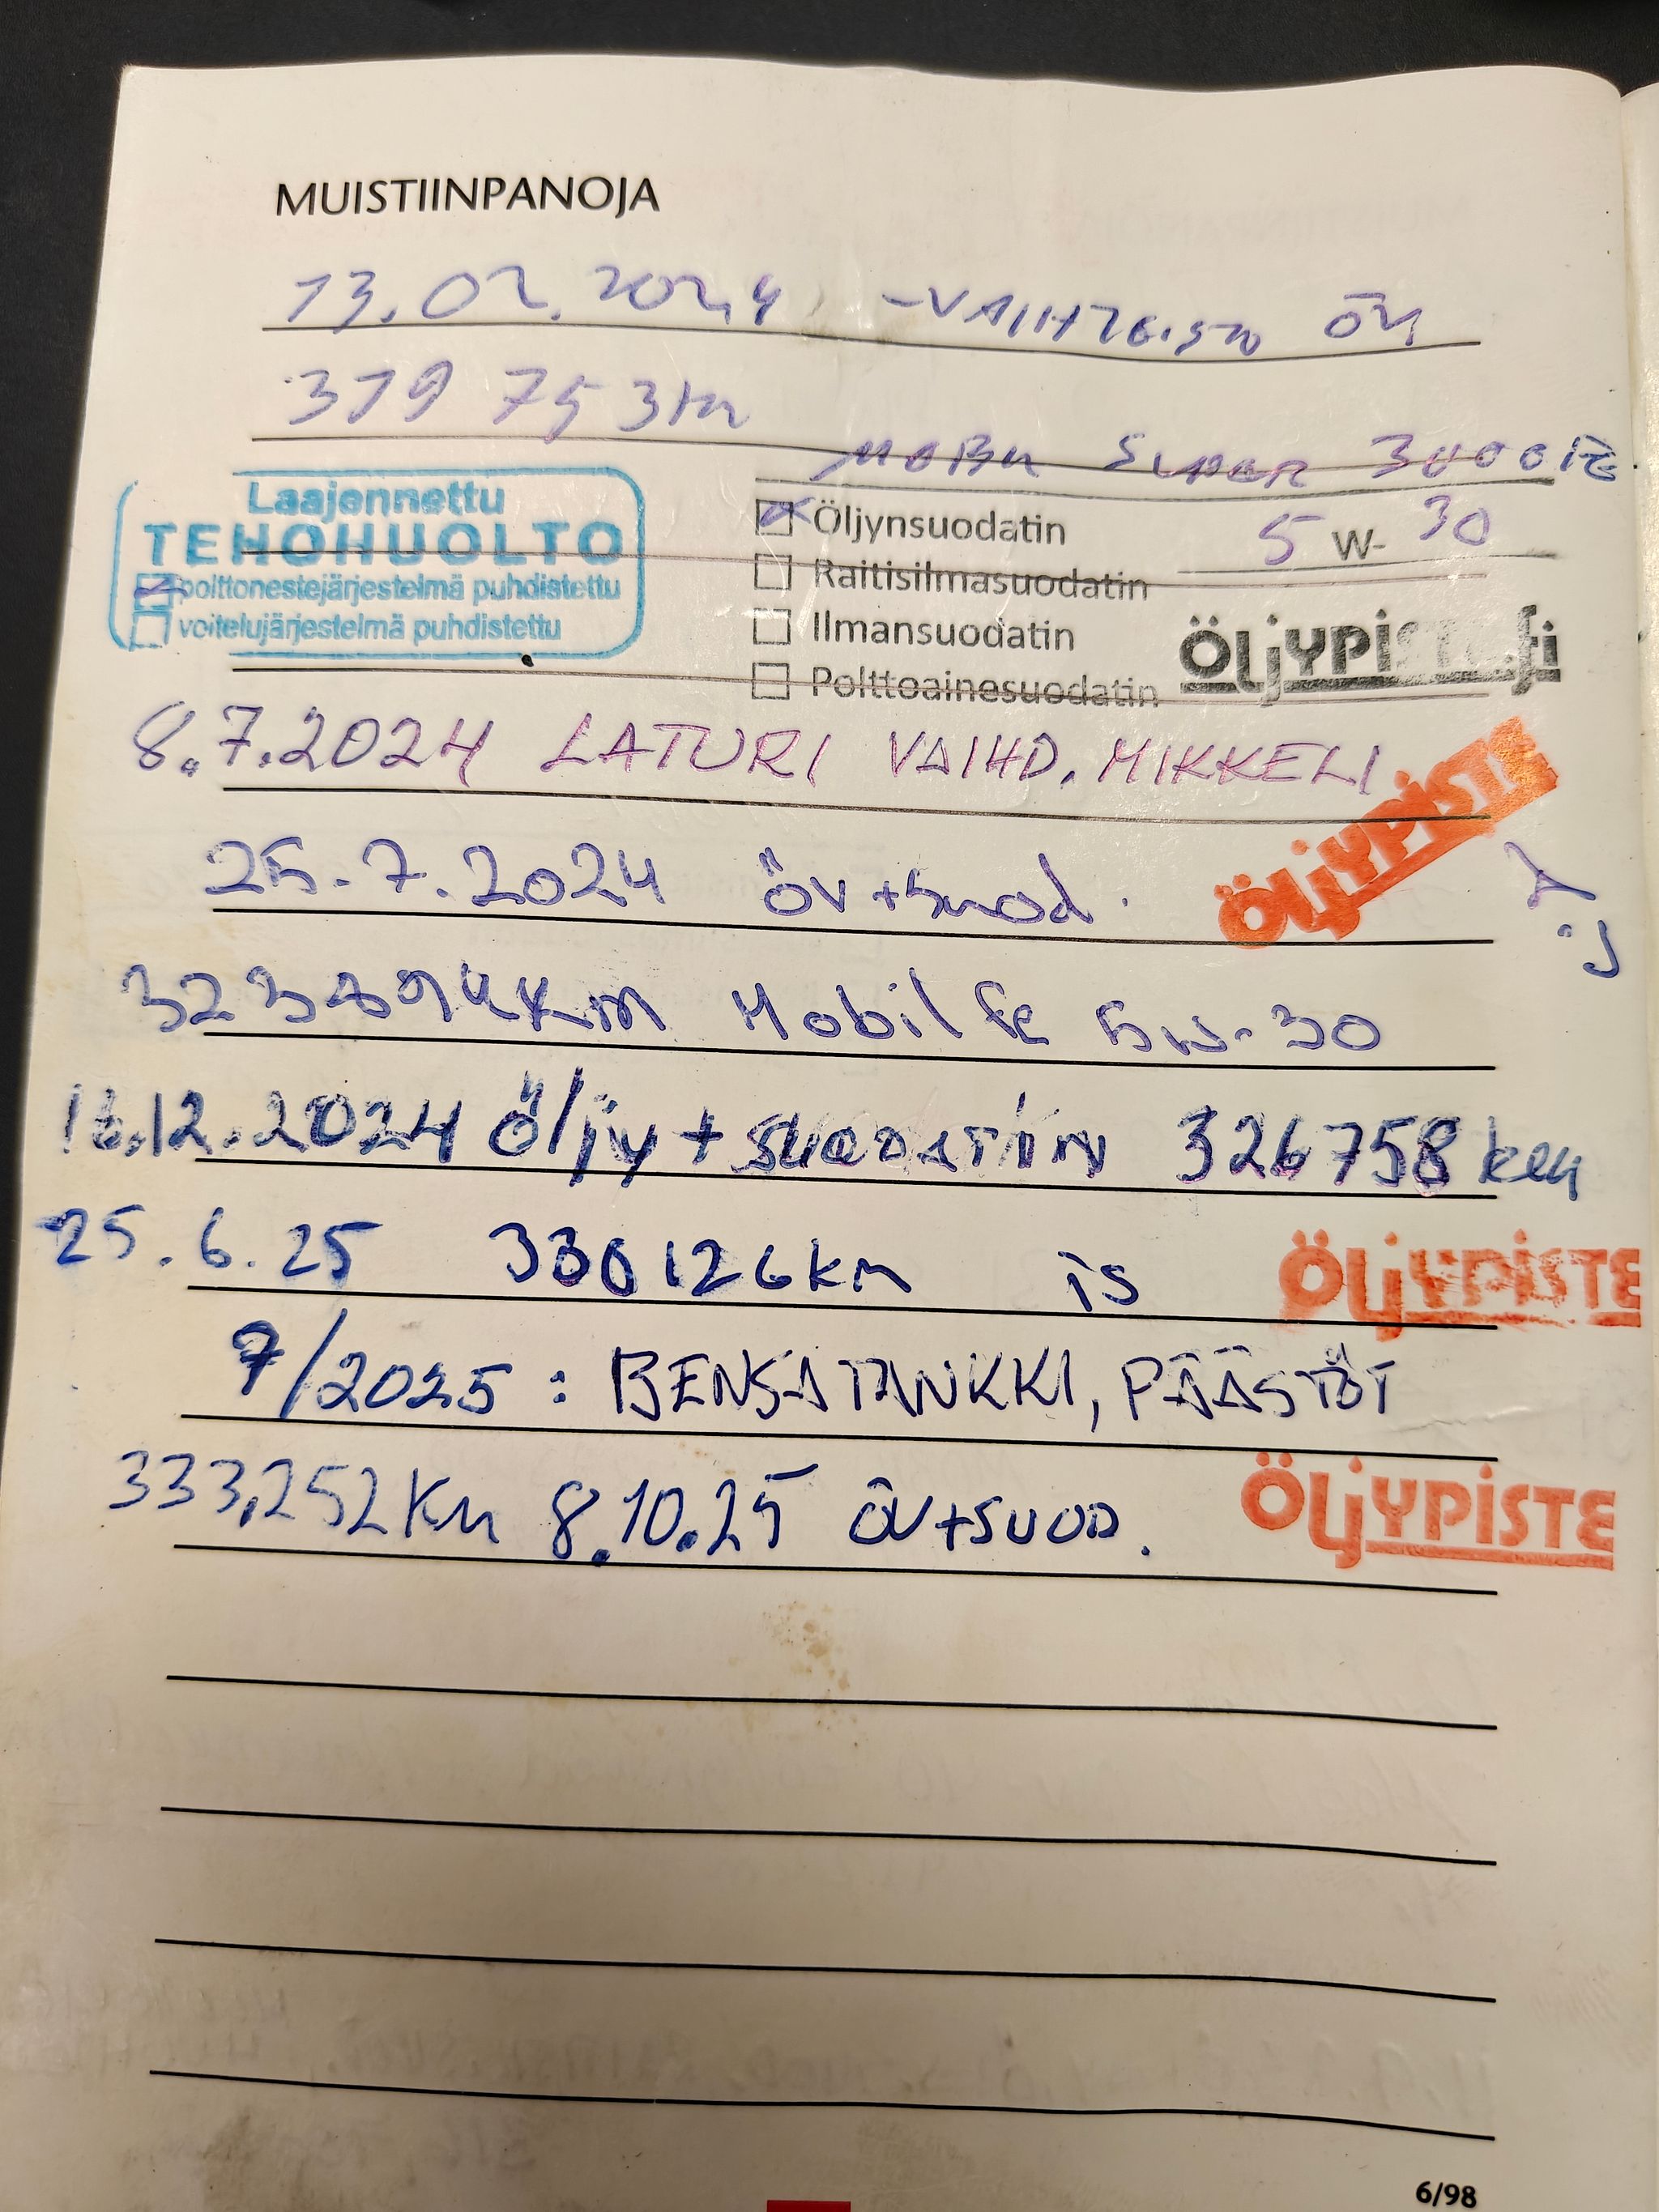 MUISTIINPANOJA
13.02.2024 -VAIHTEISTO ÖLJ
319 753km
MOBIL SUPER 3000 FE
Laajennettu
TEHOHUOLTO
polttonestejärjestelmä puhdistettu
voitelujärjestelmä puhdistettu
Öljynsuodatin
Raitisilmasuodatin
Ilmansuodatin
Polttoainesuodatin
5 W- 30
ÖLJYPISTE.fi
8.7.2024 LATURI VAIHD. MIKKELI
ÖLJYPISTE
25.7.2024 öv+suod.
323894km Mobil fe 5w-30
16.12.2024 Öljy + suodatin 326758 km
25.6.25 330126km is ÖLJYPISTE
7/2025 : BENSATANKKI, PÄÄSTÖT
333.252 km 8.10.25 ÖV+SUOD. ÖLJYPISTE
6/98